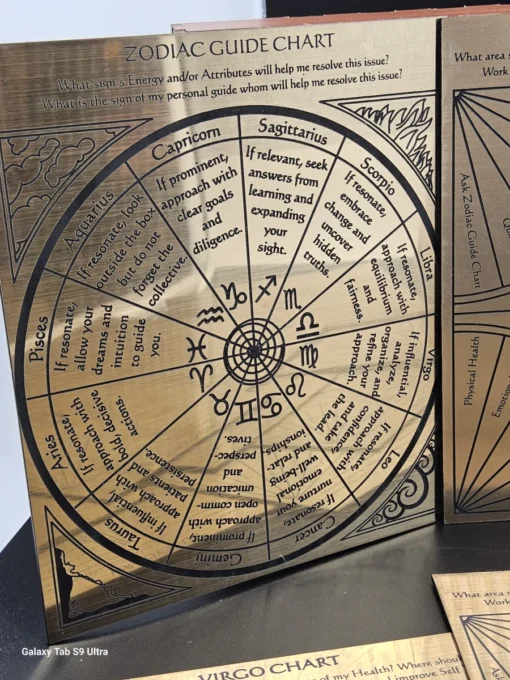 ZODIAC GUIDE CHART
What sign's Energy and/or Attributes will help me resolve this issue?
What is the sign of my personal guide whom will help me resolve this issue?
Capricorn
If prominent,
approach with
clear goals
and
diligence.
Sagittarius
If relevant, seek
answers from
learning and
expanding
your
sight.
Scorpio
If resonate,
embrace
change and
uncover
hidden
truths.
Libra
If resonate,
approach with
equilibrium
and
fairness.
Virgo
If influential,
analyze,
organize, and
refine your
approach.
Leo
If resonate,
approach with
confidence;
and take
the lead.
Cancer
If resonate,
nurture your
emotional
well-being
and relat-
ionships.
Gemini
If prominent,
approach with
open comm-
unication
and
perspec-
tives.
Taurus
If influential,
approach with
patients and
persistence.
Aries
If resonate,
approach with
bold, decisive
actions.
Pisces
If resonate,
allow your
dreams and
intuition
to guide
you.
Aquarius
If resonate, look
outside the box
but do not
forget the
collective.
What area s
Work
Ask Zodiac Guide Chart
Physical Health
Emotion
What area s
Work
VIRGO CHART
of my Health? Where shou
I improve Self
Galaxy Tab S9 Ultra